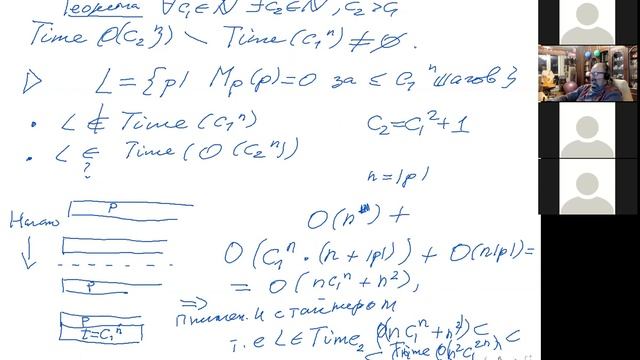 Теорема ∀c₁∈ℕ ∃c₂∈ℕ, c₂>c₁
Time O(c₂ⁿ) \ Time(c₁ⁿ) ≠ ∅.
▷ L = {p| Mₚ(p)=0 за ≤ c₁ⁿ шагов}
• L ∉ Time(c₁ⁿ)
c₂=c₁²+1
• L ∈ Time(O(c₂ⁿ))
?
n=|p|
p
Начало
O(n) +
O(c₁ⁿ·(n+|p|)) + O(n|p|)=
p
= O(nc₁ⁿ+n²),
⇒
p
t=c₁ⁿ
т.е L∈Time₂ O(nc₁ⁿ+n²) ⊂
⊂ Time O(n²c₁²ⁿ) ⊂